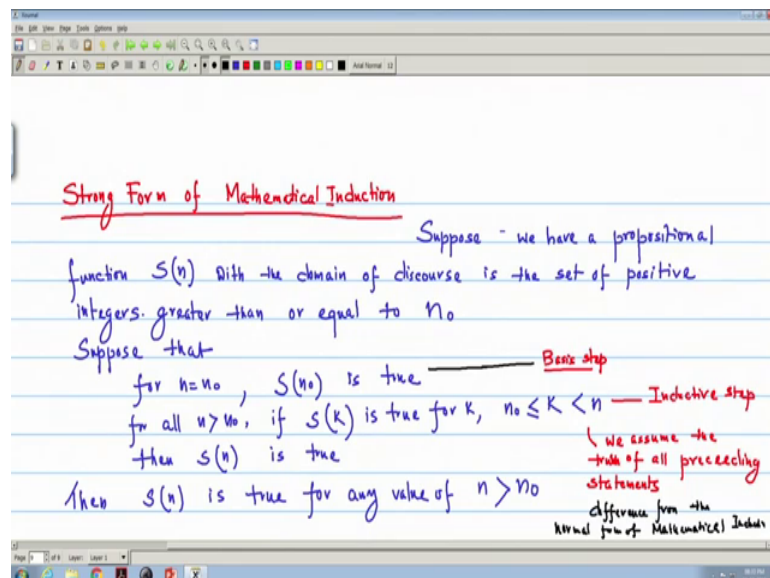 Journal
File Edit View Page Tools Options Help
Arial Normal 12
Strong Form of Mathematical Induction
Suppose - we have a propositional
function S(n) With the domain of discourse is the set of positive
integers. greater than or equal to n₀
Suppose that
for n=n₀, S(n₀) is true — Basis step
for all n>n₀, if S(K) is true for K, n₀ ≤ K < n — Inductive step
then S(n) is true
( we assume the
truth of all preceeding
statements
Then S(n) is true for any value of n > n₀
difference from the
normal form of Mathematical Induc
Page 9 of 9 Layer: Layer 1